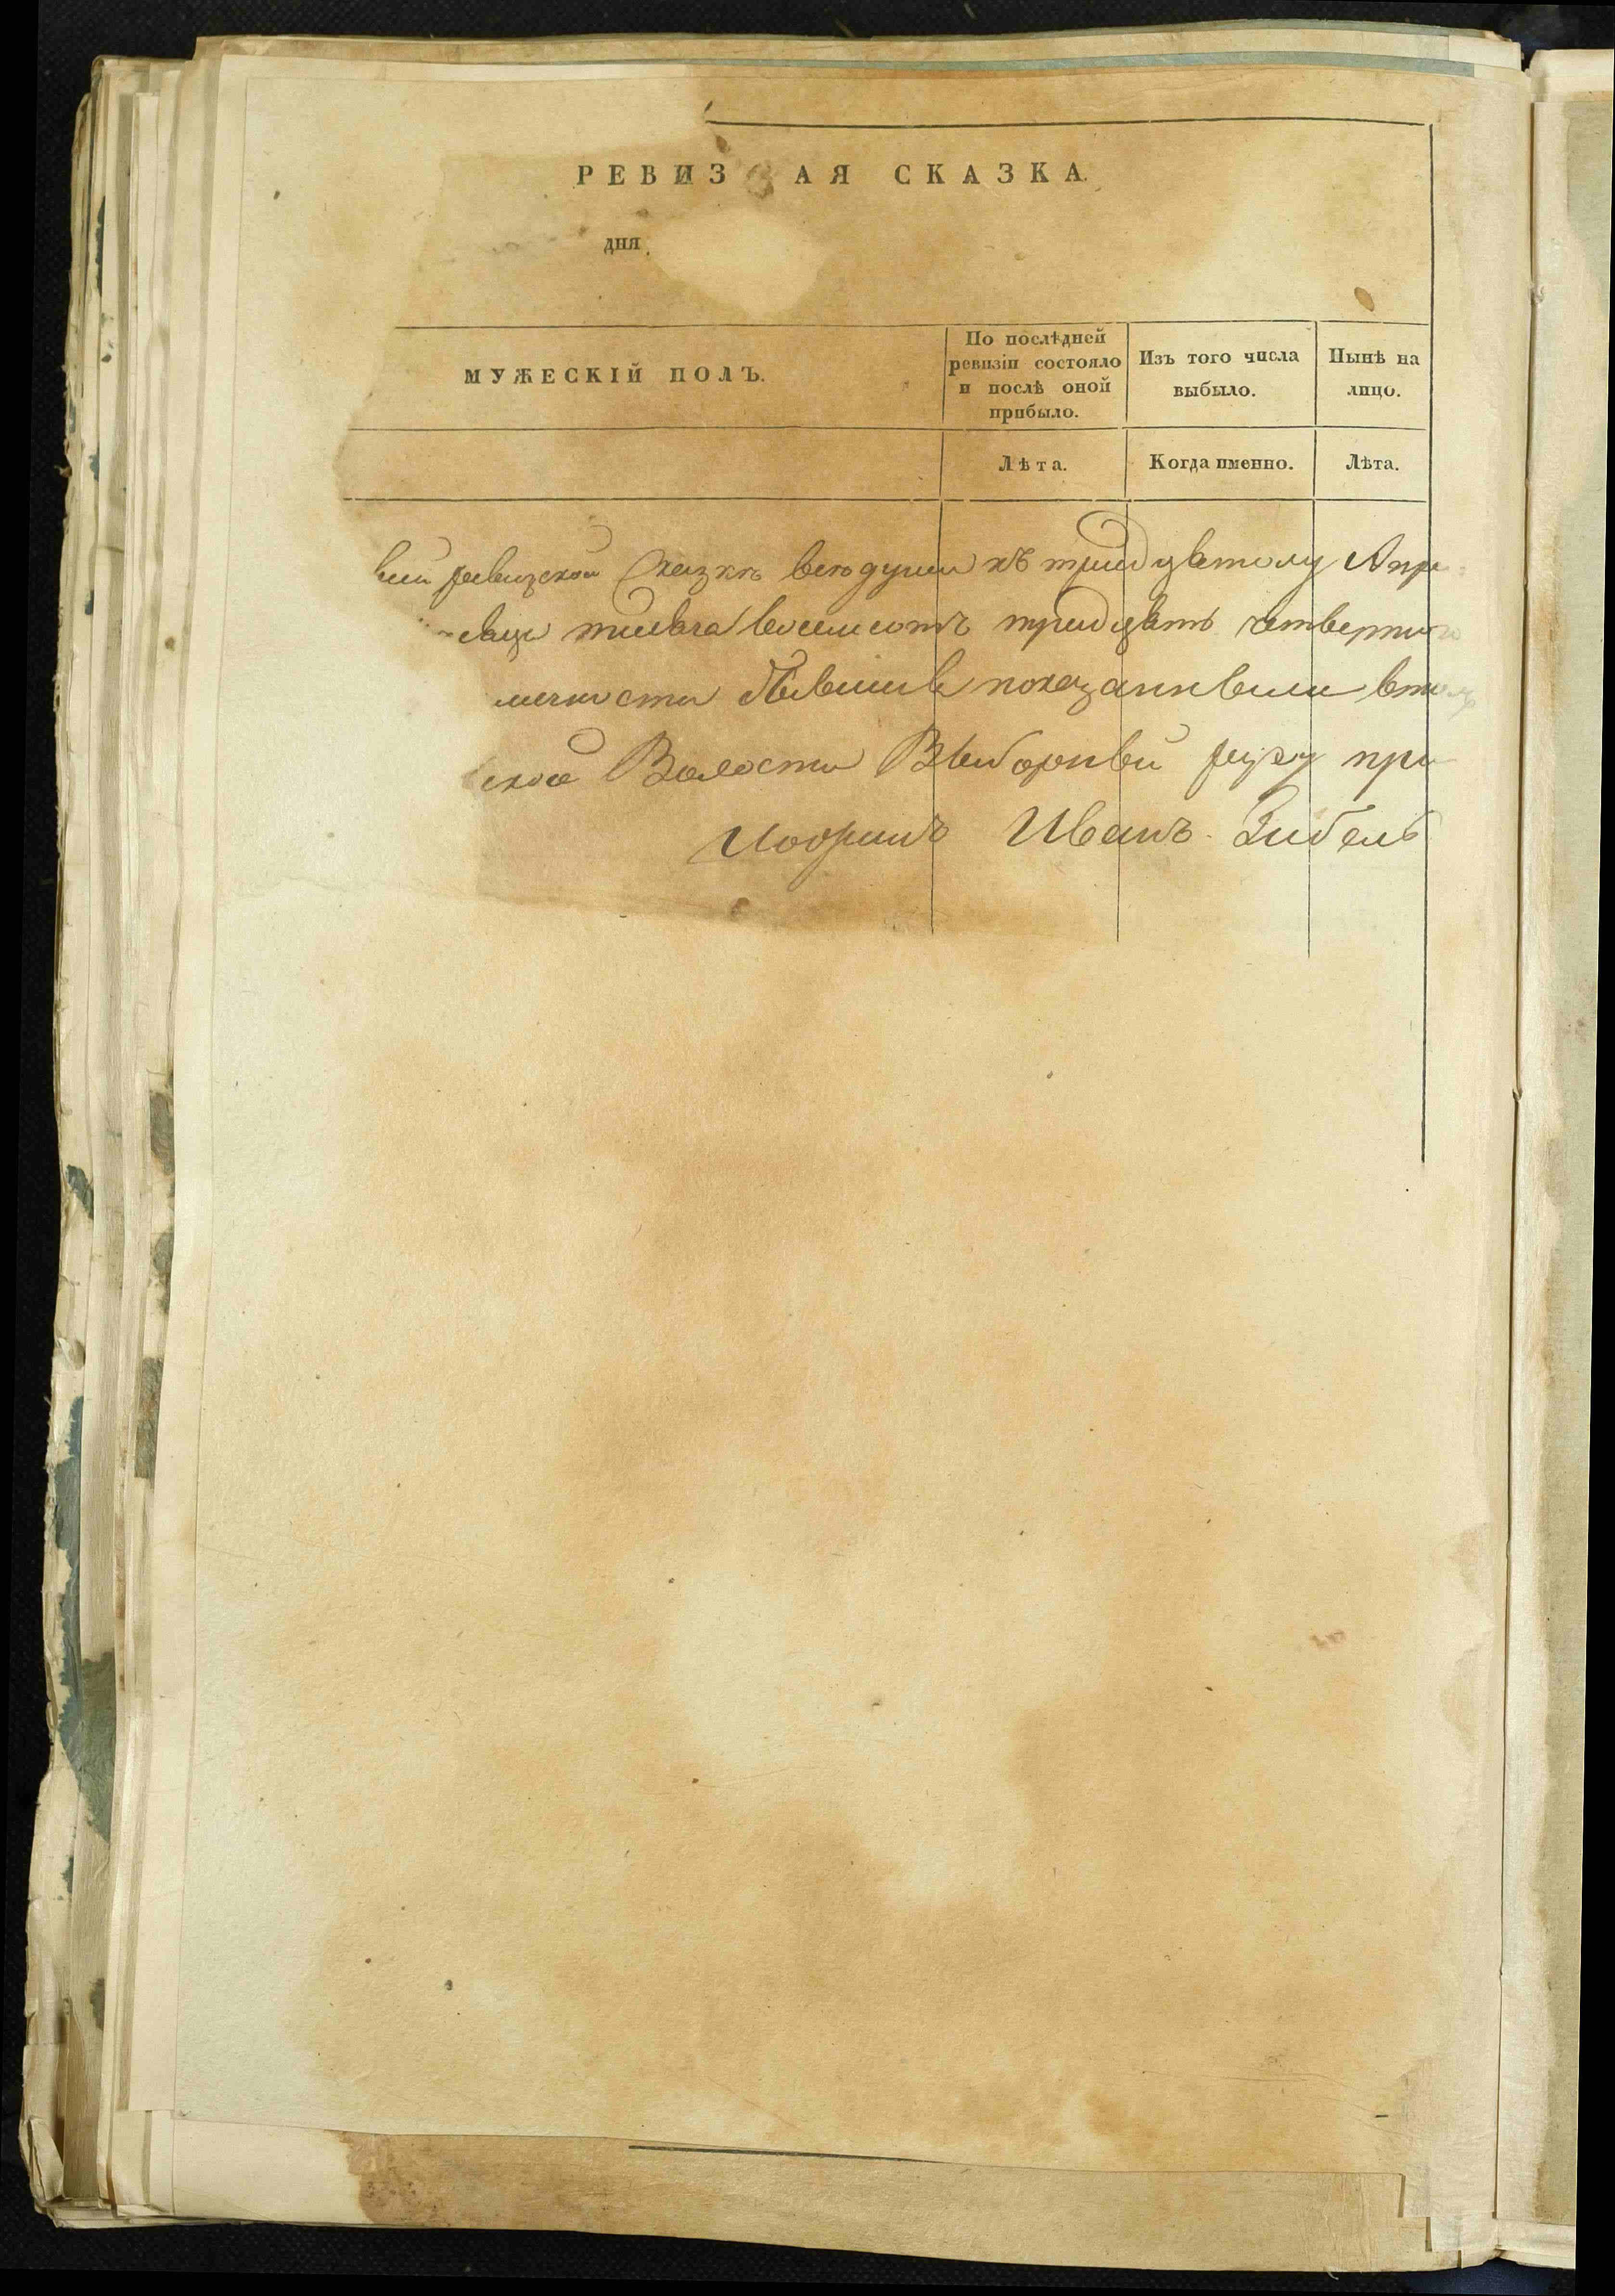 РЕВИЗ АЯ СКАЗКА.
дня
МУЖЕСКІЙ ПОЛЪ.
По послѣдней ревизіи состояло и послѣ оной прибыло.
Изъ того числа выбыло.
Нынѣ на лицо.
Лѣта.
Когда именно.
Лѣта.
ревизской Сказкѣ всѣ души къ тридцатому Апрѣ
тысяча восемсотъ тридцать четверт
бывшія показанными
ской Волости Выборный руку при
Иванъ Зибель